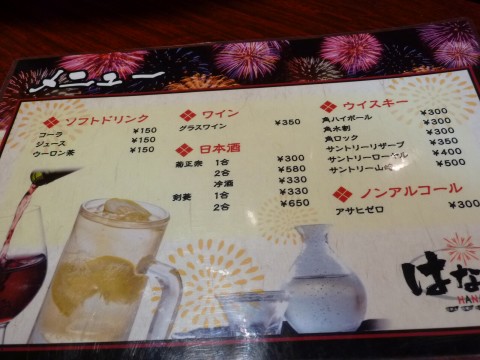 メニュー
ソフトドリンク
コーラ ¥150
ジュース ¥150
ウーロン茶 ¥150
ワイン
グラスワイン ¥350
日本酒
菊正宗 1合 ¥300
2合 ¥580
冷酒 ¥330
剣菱 1合 ¥330
2合 ¥650
ウイスキー
角ハイボール ¥300
角水割 ¥300
角ロック ¥300
サントリーリザーブ ¥350
サントリーローヤル ¥400
サントリー山崎 ¥500
ノンアルコール
アサヒゼロ ¥300
はな
HAN